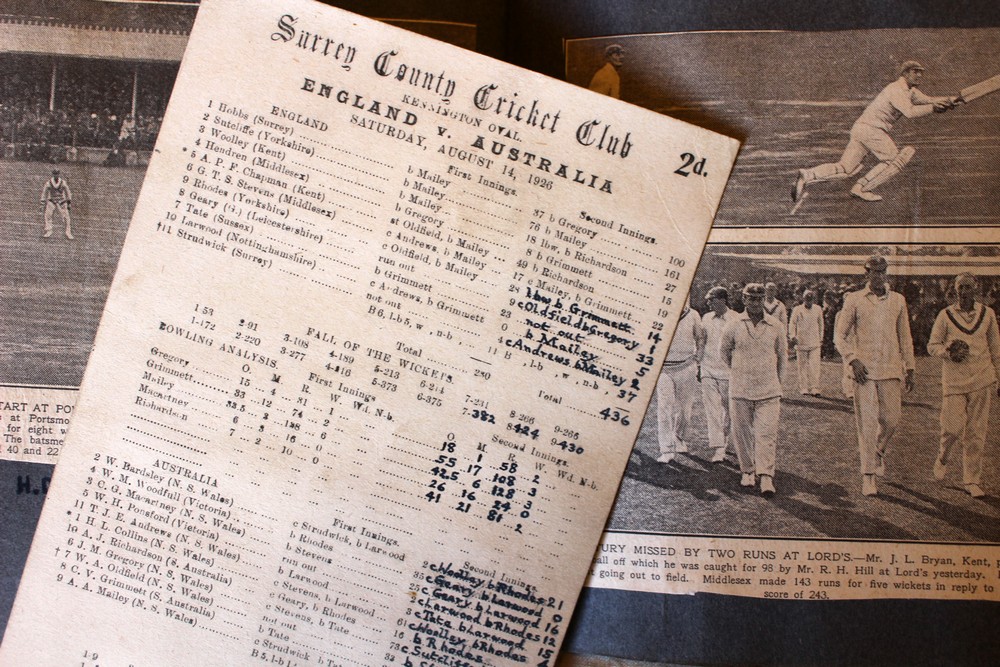 Surrey County Cricket Club
KENNINGTON OVAL.
2d.
ENGLAND V. AUSTRALIA
SATURDAY, AUGUST 14, 1926
ENGLAND First Innings. Second Innings.
1 Hobbs (Surrey) b Mailey 37 b Gregory 100
2 Sutcliffe (Yorkshire) b Mailey 76 b Mailey 161
3 Woolley (Kent) b Mailey 18 lbw, b Richardson 27
4 Hendren (Middlesex) b Gregory 8 b Grimmett 15
*5 A. P. F. Chapman (Kent) st Oldfield, b Mailey 49 b Richardson 19
6 G. T. S. Stevens (Middlesex) c Andrews, b Mailey 17 c Mailey, b Grimmett 22
9 Rhodes (Yorkshire) c Oldfield, b Mailey 28 lbw b Grimmett 14
8 Geary (G.) (Leicestershire) run out 9 c Oldfield b Gregory 1
7 Tate (Sussex) b Grimmett 23 not out 33
10 Larwood (Nottinghamshire) c Andrews, b Grimmett 0 b Mailey 5
†11 Strudwick (Surrey) not out 4 c Andrews b Mailey 2
B 6, l-b 5, w , n-b , 11 B , l-b , w , n-b , 37
Total 280 Total 436
FALL OF THE WICKETS.
1 53 2 91 3-108 4-189 5-213 6-214 7-231 8-266 9-266
1-172 2-220 3-277 4-316 5-373 6-375 7-382 8-424 9-430
BOWLING ANALYSIS. First Innings Second Innings.
O. M. R. W. Wd. N-b. O. M. R. W. Wd. N-b.
Gregory 15 4 31 1 18 1 58 2
Grimmett 33 12 74 2 55 17 108 3
Mailey 33.5 3 138 6 42.5 6 128 3
Macartney 6 3 16 0 26 16 24 0
Richardson 7 2 10 0 41 21 81 2
AUSTRALIA First Innings. Second Innings.
2 W. Bardsley (N. S. Wales) c Strudwick, b Larwood 2 c Woolley b Rhodes 21
4 W. M. Woodfull (Victoria) b Rhodes 35 c Geary b Larwood 0
3 C. G. Macartney (N. S. Wales) b Stevens 25 c Geary b Larwood 16
5 W. H. Ponsford (Victoria) run out 2 c Larwood b Rhodes 12
11 T. J. E. Andrews (N. S. Wales) b Larwood 3 c Tate b Larwood 15
*1 H. L. Collins (N. S. Wales) c Stevens, b Larwood 61 c Woolley b Rhodes 4
10 A. J. Richardson (S. Australia) c Geary, b Rhodes 16 b Rhodes
6 J. M. Gregory (N. S. Wales) c Stevens, b Tate 73 c Sutcliffe
†7 W. A. Oldfield (N. S. Wales) not out
8 C. V. Grimmett (S. Australia) b Tate
9 A. A. Mailey (N. S. Wales) c Strudwick b Tate
B 5, l-b
START AT
at Portsmo
for eight w
The batsme
40 and 22
URY MISSED BY TWO RUNS AT LORD'S.—Mr. J. L. Bryan, Kent,
all off which he was caught for 98 by Mr. R. H. Hill at Lord's yesterday.
going out to field. Middlesex made 143 runs for five wickets in reply to
score of 243.